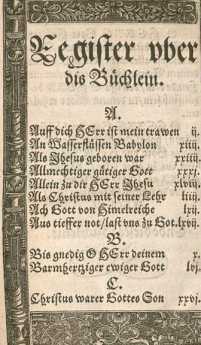 Register vber
dis Büchlein.
A.
Auff dich HErr ist mein trawen ij.
An Wasserflüssen Babylon xiiij.
Als Jhesus geboren war xxiiij.
Allmechtiger gütiger Gott xxxj.
Allein zu dir HErr Jhesu xlviij.
Als Christus mit seiner Lehr liiij.
Ach Gott von Himelreiche lxij.
Aus tieffer not/last vns zu Got. lxvij.
B.
Bis gnedig O HErr deinem x.
Barmhertziger ewiger Gott lvj.
C.
Christus warer Gottes Son xxvj.